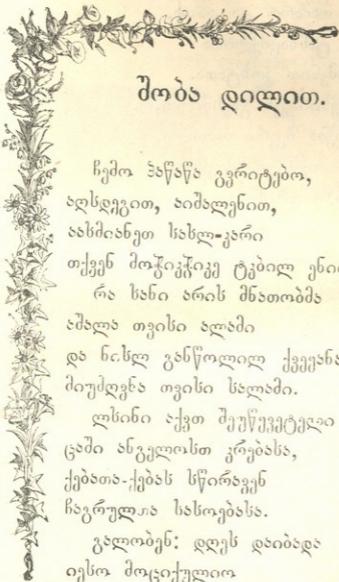 შობა დილით.
ჩემო პაწაწა გვრიტებო,
აღსდეგით, აიშალენით,
აასმიანეთ სახლ-კარი
თქვენ მოჭიკჭიკე ტკბილ ენით
რა ხანი არის მნათობმა
აშალა თვისი ალამი
და ნისლ განწოლილ ქვეყანა
მიუძღვნა თვისი სალამი.
ლხინი აქვთ შეუწყვეტელი
ცაში ანგელოსთ კრებასა,
ქებათა-ქებას სწირავენ
ჩაგრულთა სასოებასა.
გალობენ: დღეს დაიბადა
იესო მოციქულიო